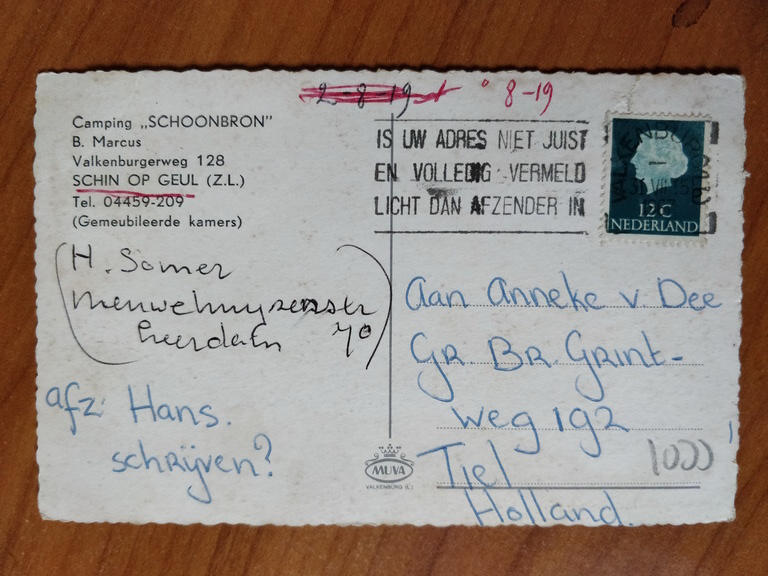 2-8-19
8-19
Camping „SCHOONBRON"
B. Marcus
Valkenburgerweg 128
SCHIN OP GEUL (Z.L.)
Tel. 04459-209
(Gemeubileerde kamers)
IS UW ADRES NIET JUIST
EN VOLLEDIG VERMELD
LICHT DAN AFZENDER IN
VALKENBURG
31 VII
12 C
NEDERLAND
(H. Somer
70)
afz: Hans.
schrijven?
Aan Anneke v. Dee
Gr. Br. Grint-
weg 192
Tiel
Holland.
1000
MUVA
VALKENBURG (L.)